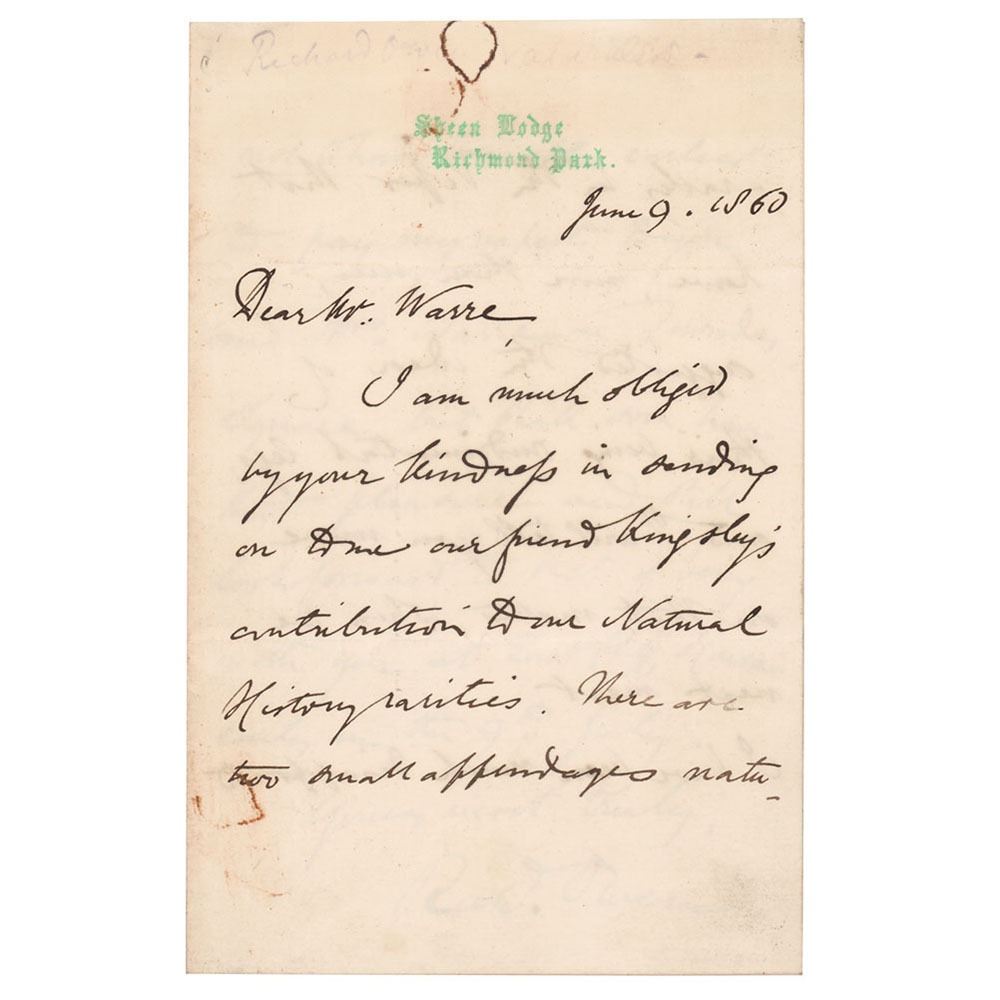 Richard Owen
Sheen Lodge
Richmond Park.
June 9. 1860
Dear Mr. Warre,
I am much obliged
by your kindness in sending
on to me our friend Kingsley's
contribution to our Natural
History rarities. There are
two small appendages natu-